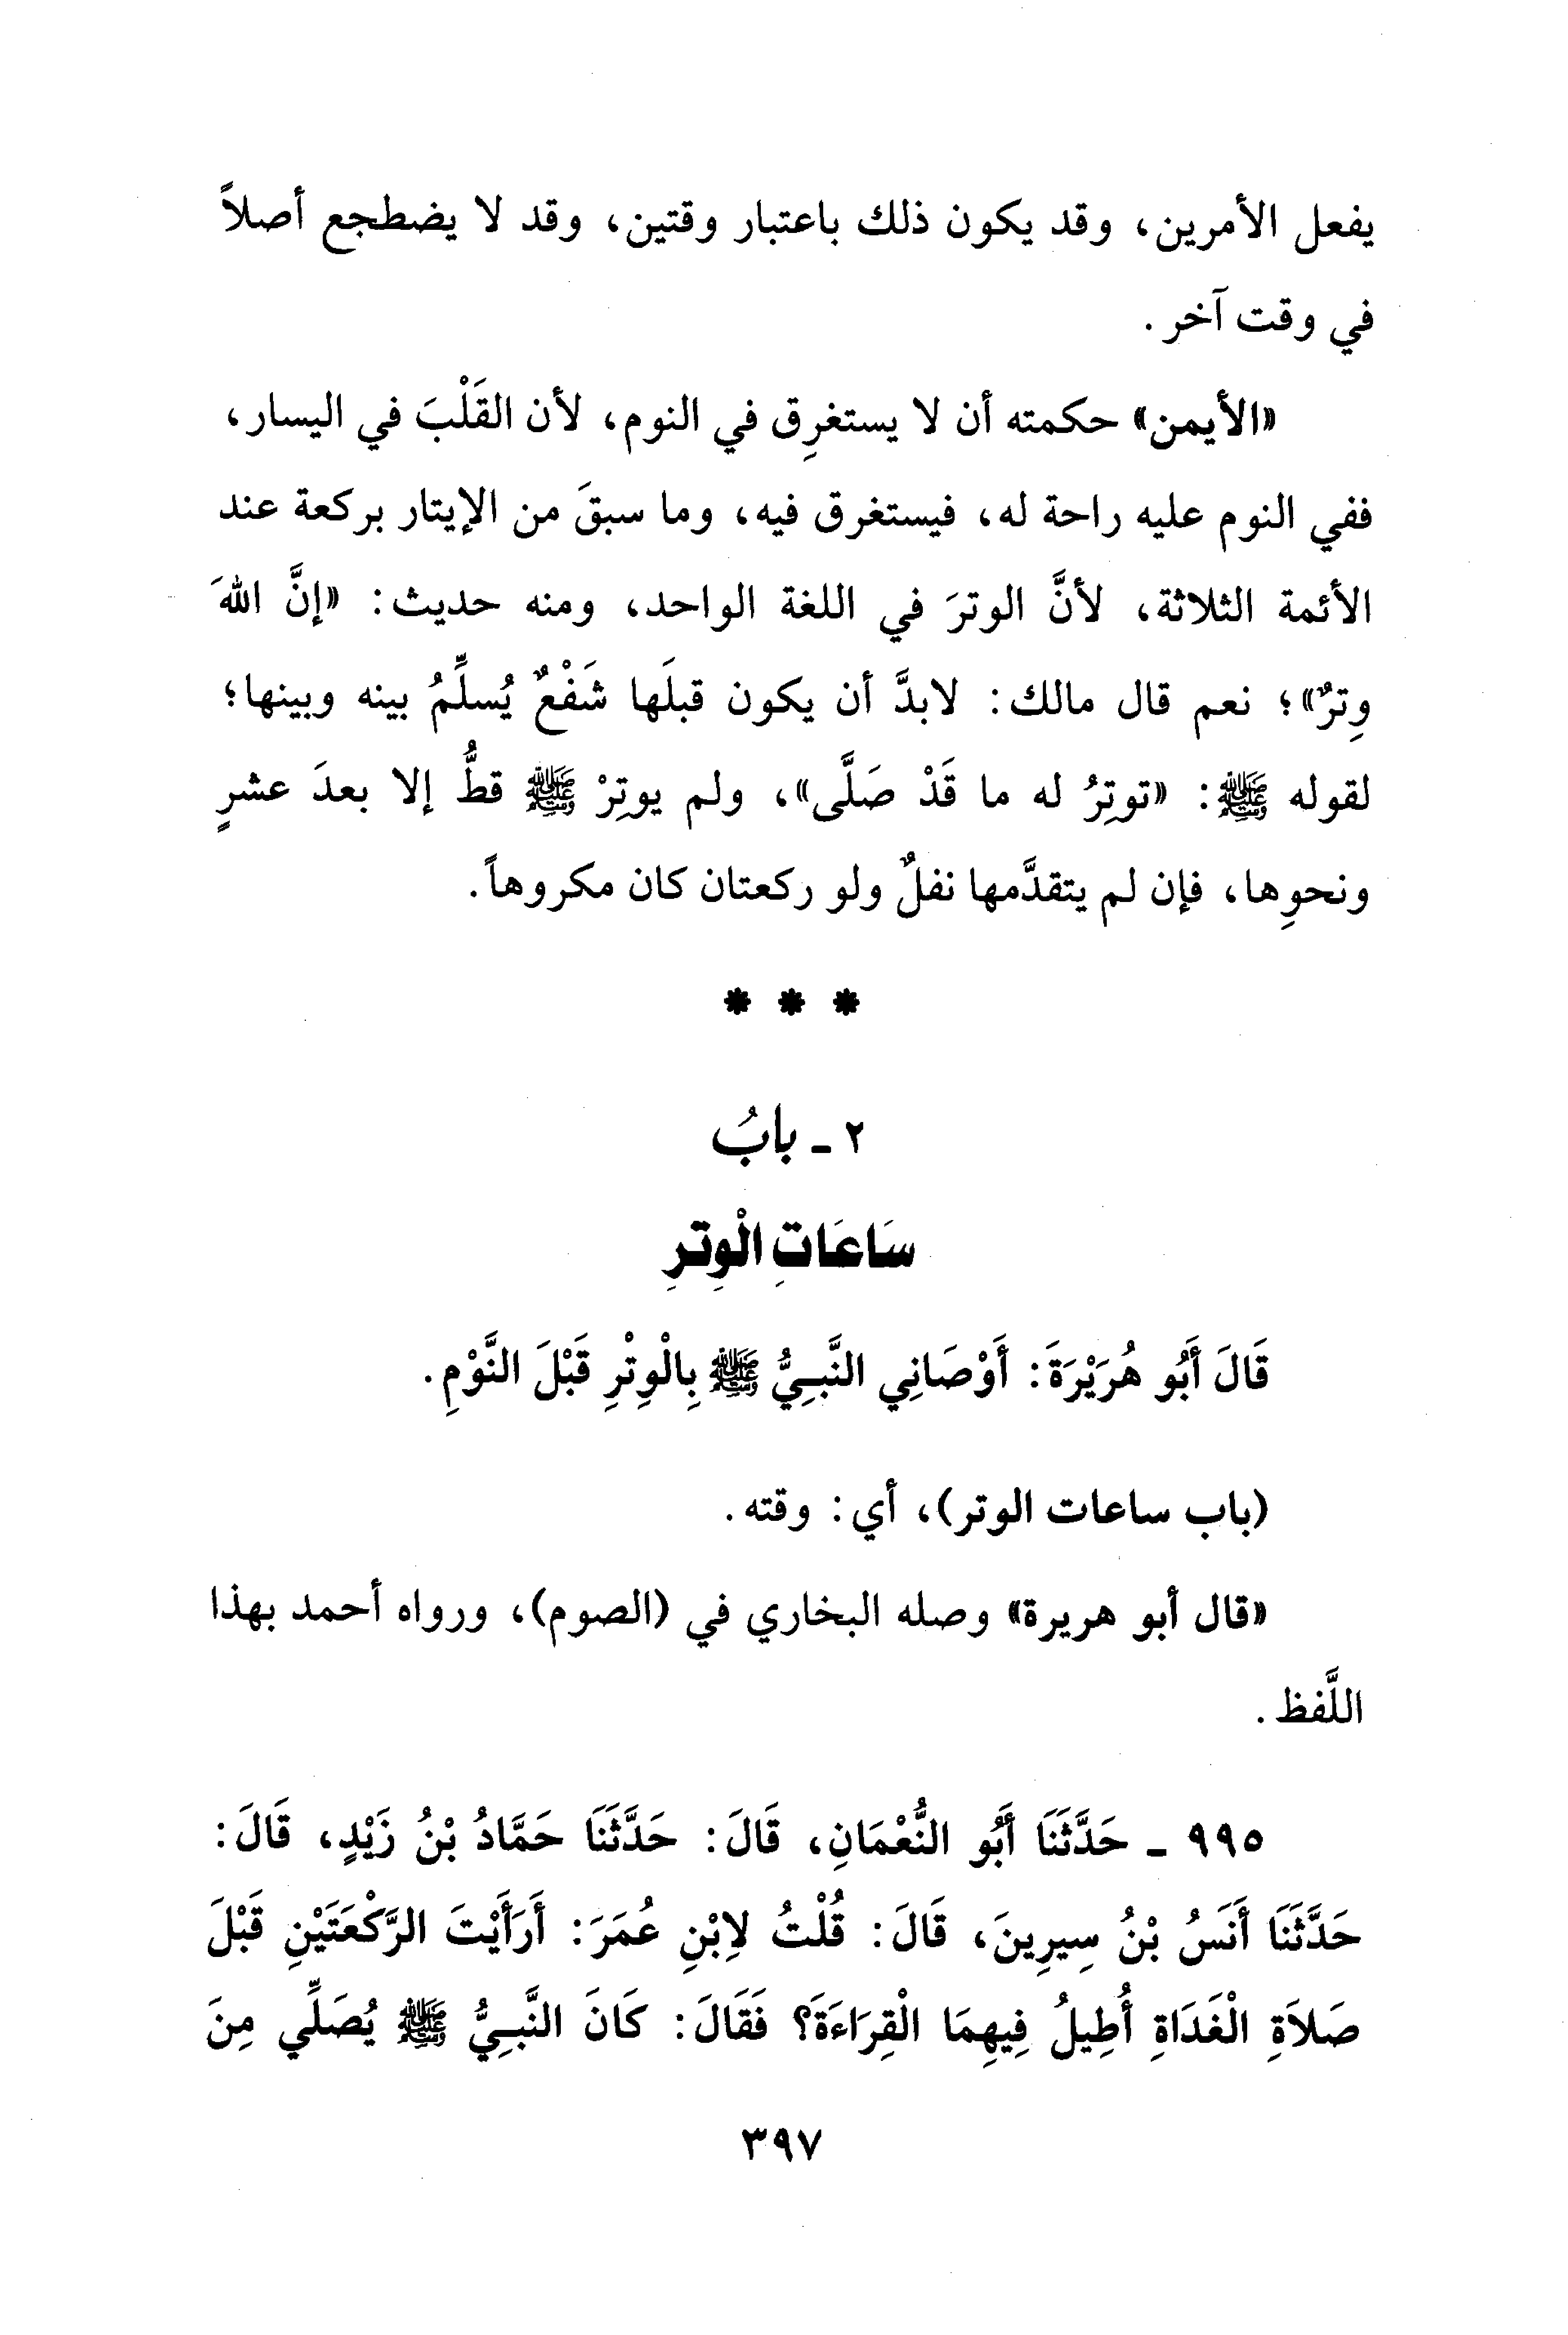 يفعل الأمرين، وقد يكون ذلك باعتبار وقتين، وقد لا يضطجع أصلاً
في وقت آخر.
«الأيمن» حكمته أن لا يستغرِق في النوم، لأن القَلْبَ في اليسار،
ففي النوم عليه راحة له، فيستغرق فيه، وما سبقَ من الإيتار بركعة عند
الأئمة الثلاثة، لأنَّ الوترَ في اللغة الواحد، ومنه حديث: «إنَّ اللهَ
وِترٌ»؛ نعم قال مالك: لابدَّ أن يكون قبلَها شَفْعٌ يُسلِّمُ بينه وبينها؛
لقوله ﷺ: «توتِرُ له ما قَدْ صَلَّى»، ولم يوتِرْ ﷺ قطُّ إلا بعدَ عشرٍ
ونحوِها، فإن لم يتقدَّمها نفلٌ ولو ركعتان كان مكروهاً.
* * *
٢ ـ بابُ
سَاعَاتِ الْوِترِ
قَالَ أَبُو هُرَيْرَةَ: أَوْصَانِي النَّبِيُّ ﷺ بِالْوِتْرِ قَبْلَ النَّوْمِ.
(باب ساعات الوتر)، أي: وقته.
«قال أبو هريرة» وصله البخاري في (الصوم)، ورواه أحمد بهذا
اللَّفظ.
٩٩٥ ـ حَدَّثَنَا أَبُو النُّعْمَانِ، قَالَ: حَدَّثَنَا حَمَّادُ بْنُ زَيْدٍ، قَالَ:
حَدَّثَنَا أَنَسُ بْنُ سِيرِينَ، قَالَ: قُلْتُ لاِبْنِ عُمَرَ: أَرَأَيْتَ الرَّكْعَتَيْنِ قَبْلَ
صَلاَةِ الْغَدَاةِ أُطِيلُ فِيهِمَا الْقِرَاءَةَ؟ فَقَالَ: كَانَ النَّبِيُّ ﷺ يُصَلِّي مِنَ
٣٩٧